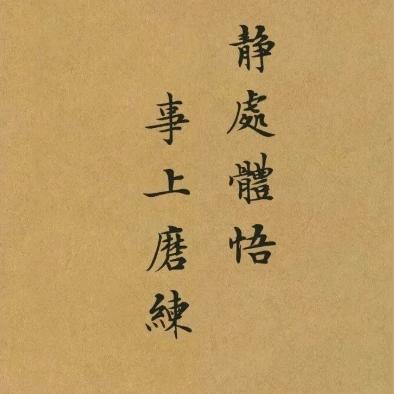 静處體悟
事上磨練